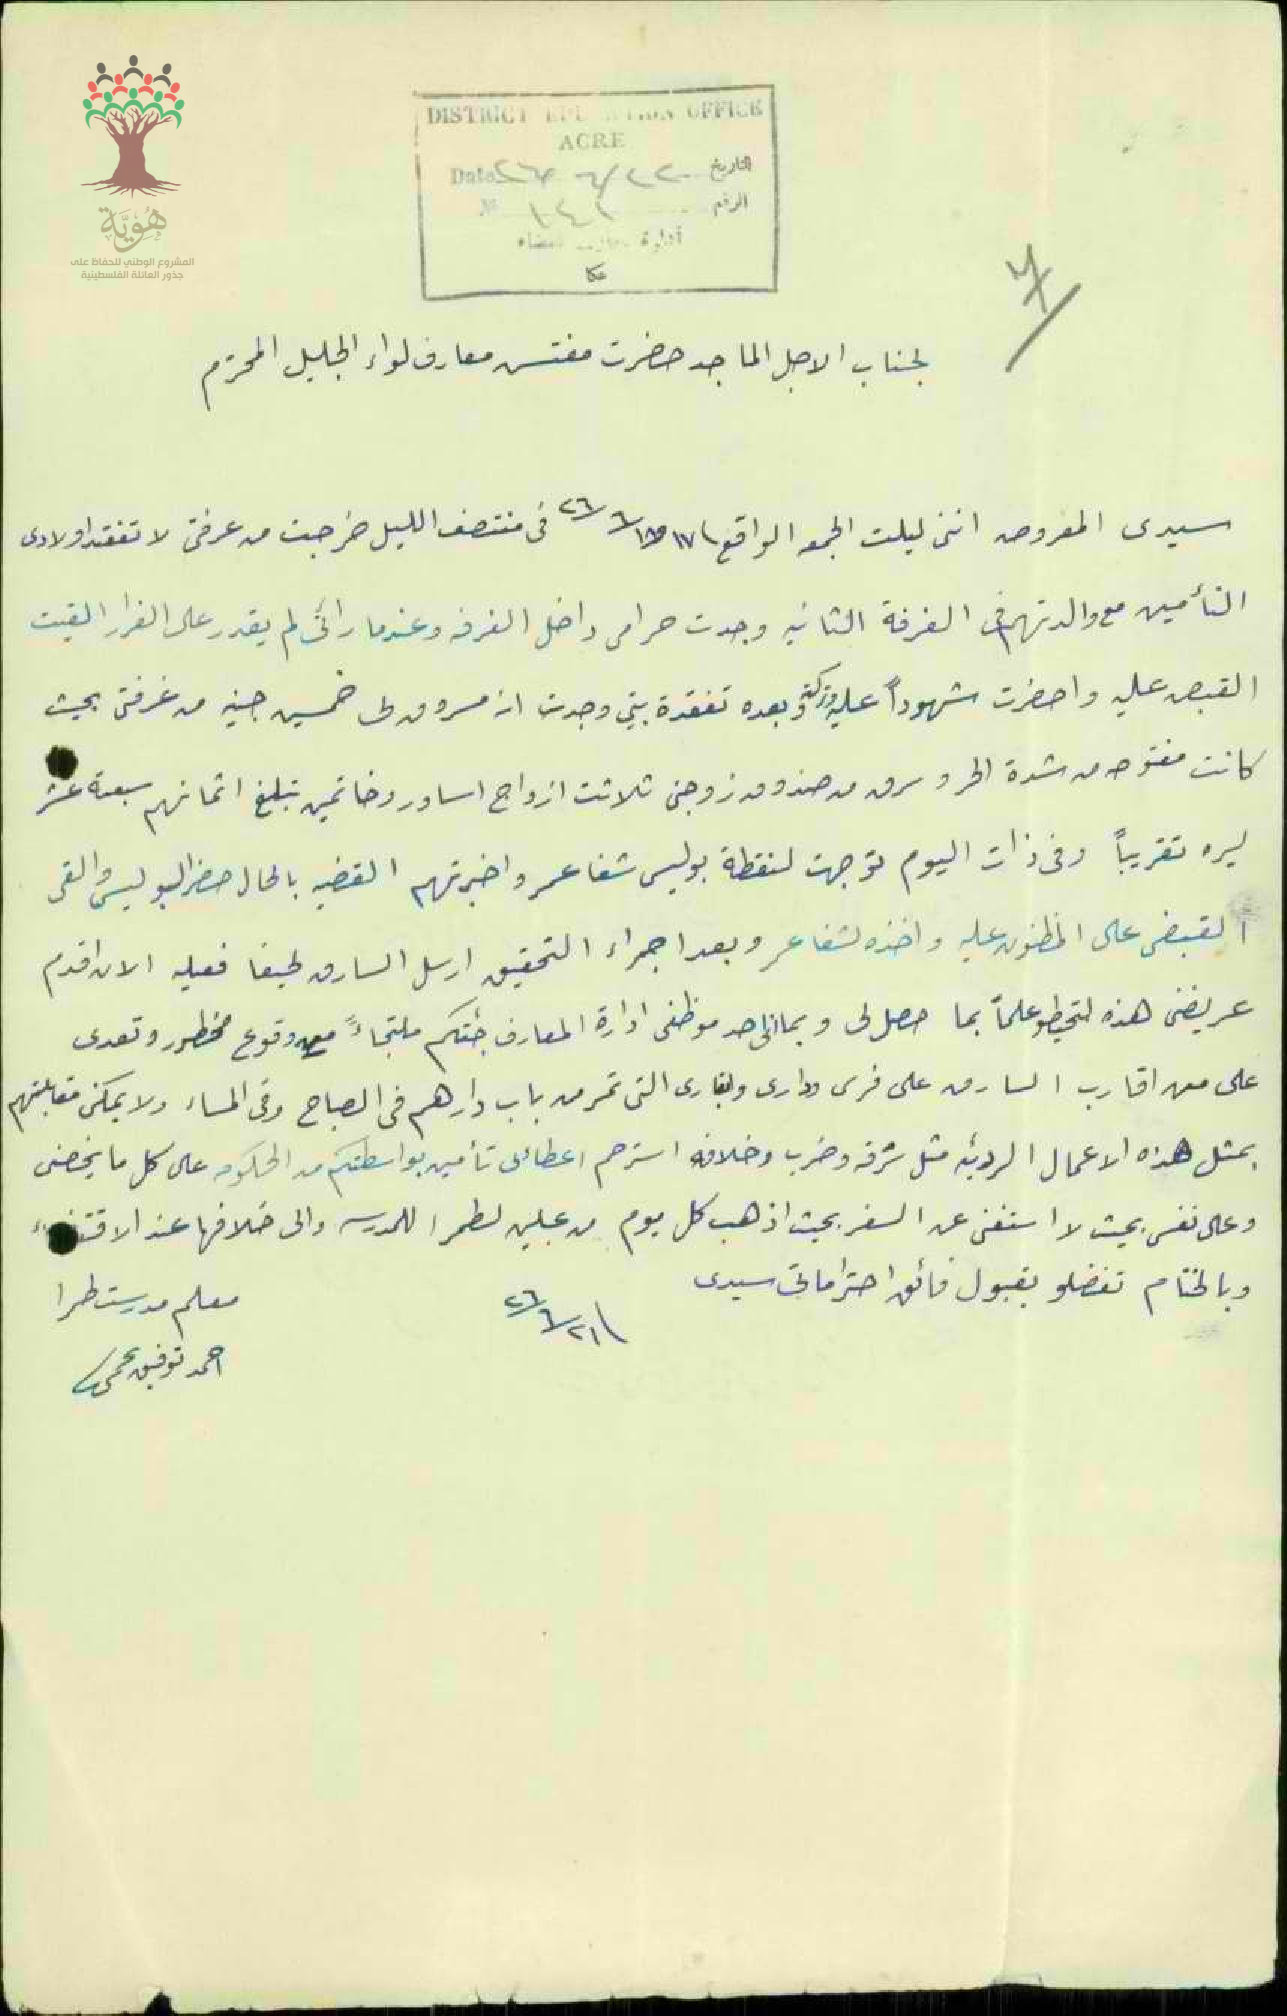 هُوِيَّة
المشروع الوطني للحفاظ على
جذور العائلة الفلسطينية
DISTRICT EDUCATION OFFICE
ACRE
Date ٢٦ ٦/٢٢ التاريخ
№ ١٤١ الرقم
أدارة معارف قضاء
عكا
لجناب الاجل الماجد حضرت مفتش معارف لواء الجليل المحترم
سيدى المفروض اننى ليلت الجمعه الواقع ١٧ ٦ ٢٦ فى منتصف الليل خرجت من غرفتى لا تفقد اولادى
التأمين مع والدتهم فى الغرفة الثانيه وجدت حرامى داخل الغرفه وعندما رانى لم يقدر على الفرار القيت
القبض عليه واحضرت شهوداً عليه وبعده تفقدة بيتي وجدت انه مسروق لى خمسين جنيه من غرفتى بحيث
كانت مفتوحه من شدة الحر وسرق من صندوق زوجتى ثلاثت ازواج اساور وخاتمين تبلغ اثمانهم سبعة عشر
ليره تقريباً وفى ذات اليوم توجهت لنقطة بوليس شفا عمر واخبرتهم القضيه بالحال حضر البوليس والقى
القبض على المظنون عليه واخذه لشفا عمر وبعد اجراء التحقيق ارسل السارق لحيفا فعليه الان اقدم
عريضتى هذه لتحيطو علماً بما حصل لى وبما انى احد موظفى ادارة المعارف جئتكم ملتجاءً وقوع محظور وتعدى
على من اقارب السارق على فرسى ودارى وابقارى التى تمر من باب دارهم فى الصباح وفى المساء ولا يمكنى مقابلتهم
بمثل هذه الاعمال الرديئه مثل سرقه وضرب وخلافه استرحم اعطائى تأمين بواسطتكم من الحكومه على كل ما يخصنى
وعلى نفسى بحيث لا استغنى عن السفر بحيث اذهب كل يوم من عبلين لطمرا للمدرسه والى خلافها عند الاقتضاء
وبالختام تفضلو بقبول فائق احتراماتى سيدى
٢١ ٦ ٢٦
معلم مدرست طمرا
احمد توفيق